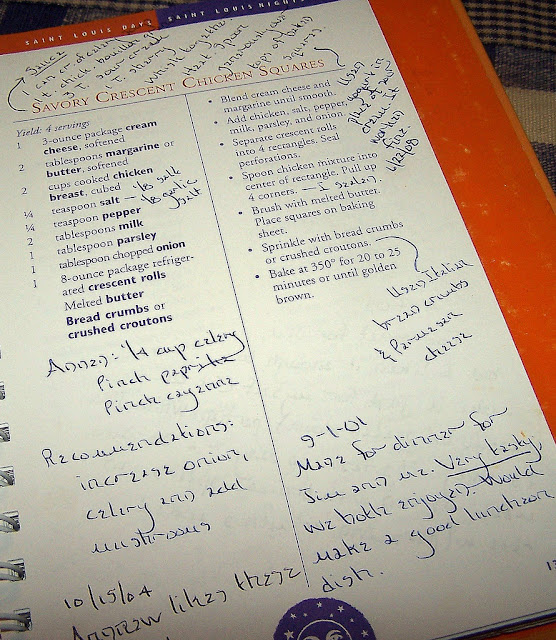 SAINT LOUIS DAYS SAINT LOUIS NIGHTS
Sauce:
1 can cr of celery
t. chick bouillon gr
T. sour cream
T. sherry
whisk together
heat & spoon
over
tops of baked
squares.
SAVORY CRESCENT CHICKEN SQUARES
Yield: 4 servings
1 3-ounce package cream
cheese, softened
2 tablespoons margarine or
butter, softened
2 cups cooked chicken
breast, cubed
¼ teaspoon salt – ⅛ salt
⅛ garlic
salt
¼ teaspoon pepper
2 tablespoons milk
1 tablespoon parsley
1 tablespoon chopped onion
1 8-ounce package refriger-
ated crescent rolls
Melted butter
Bread crumbs or
crushed croutons
Added: ¼ cup celery
Pinch paprika
Pinch cayenne
Recommendations:
increase onion,
celery and add
mushrooms
10/15/04
Andrew liked these
• Blend cream cheese and
margarine until smooth.
• Add chicken, salt, pepper,
milk, parsley, and onion.
• Separate crescent rolls
into 4 rectangles. Seal
perforations.
• Spoon chicken mixture into
center of rectangle. Pull up
4 corners. – I sealed
• Brush with melted butter.
Place squares on baking
sheet.
• Sprinkle with bread crumbs
or crushed croutons.
• Bake at 350° for 20 to 25
minutes or until golden
brown.
Used
yogurt in
place of sour
cream. It
worked
fine.
Used Italian
bread crumbs
& Parmesan
cheese
9-1-01
Made for dinner for
Jim and me. Very tasty,
we both enjoyed. Would
make a good luncheon
dish.